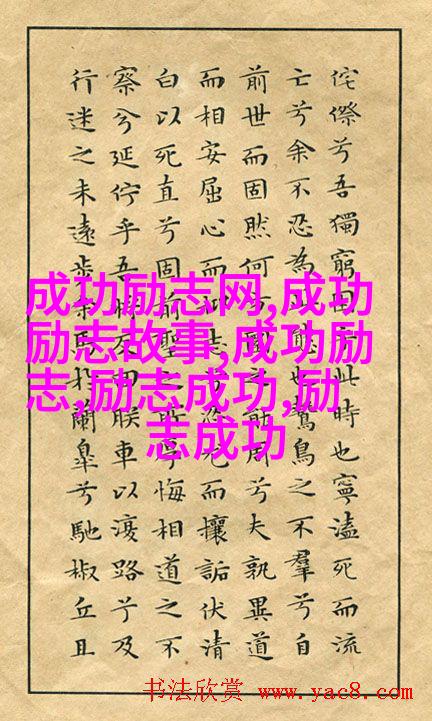 侘傺兮吾獨窮困乎此時也寧溘死而流
亡兮余不忍為此態也鷙鳥之不羣兮自
前世而固然何之能周兮夫孰異道
而相安屈心而抑志兮忍尤而攘詬伏清
白以死直兮固前聖之所厚悔相道之不
察兮延佇乎吾將反回朕車以復路兮及
行迷之未遠步余馬於蘭皋兮馳椒丘且
成功励志网,成功
励志故事,成功励
志,励志成功,励
志成功
书法欣赏 www.yac8.com